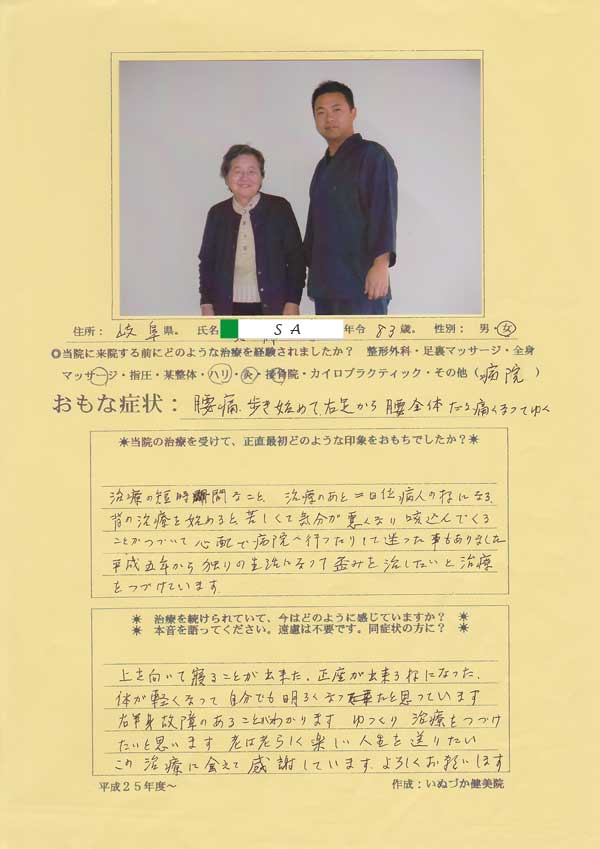 住所： 岐阜県。 氏名 S A 年令 83歳。 性別： 男・女
◎当院に来院する前にどのような治療を経験されましたか？ 整形外科・足裏マッサージ・全身
マッサージ・指圧・某整体・ハリ・灸・接骨院・カイロプラクティック・その他（病院）
おもな症状： 腰痛、歩き始めて右足から腰全体だる痛くなってゆく
＊当院の治療を受けて、正直最初どのような印象をおもちでしたか？＊
治療の短時間なこと、治療のあと二日位病人の様になる、
背の治療を始めると苦しくて気分が悪くなり咳込んでくる
ことがつづいて心配で病院へ行ったりして迷った事もありました
平成五年から独りの生活になって歪みを治したいと治療
をつづけています
＊ 治療を続けられていて、今はどのように感じていますか？ ＊
＊ 本音を語ってください。遠慮は不要です。同症状の方に？ ＊
上を向いて寝ることが出来た、正座が出来る様になった、
体が軽くなって自分でも明るくなったと思っています
右半身故障のあることがわかります ゆっくり治療をつづけ
たいと思います 老は老らしく楽しい人生を送りたい
この治療に会えて感謝しています、よろしくお願いします
平成２５年度～ 作成：いぬづか健美院